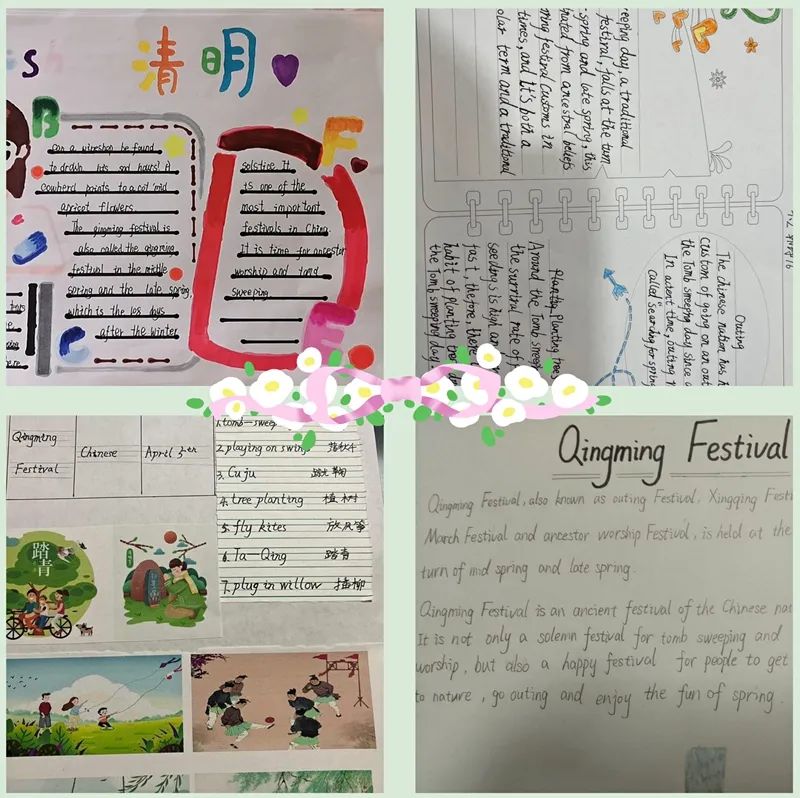 sh
清明
B
can a wineshop be found
to drown his sad hours? A
cowherd points to a cot mid
apricot flowers.
The qingming festival is
also called the qingming
festival in the middle
spring and the late spring,
which is the 108 days
after the winter
C
F
solstice It
is one of the
most important
festivals in China
It is time for ancestor
worship and tomb
sweeping.
E
eeping day, a traditional
festival, falls at the turn
spring and late spring, this
nated from ancestral beliefs
ring festival Customs in
times, and it's both a
olar term and a traditional
Outing
The chinese nation has h
custom of going on an out
the tomb sweeping day since
In acient time, outing
called "searching for spring
Planting
Planting trees
Around the Tomb sweep
the surrival rate of
seedings is high an
fast, thefore, there
habit of planting tree
the Tomb sweeping day
Qingming
Festival
Chinese
April 5th
1. tomb-sweep
2. playing on swing 荡秋千
3. Cuju 蹴鞠
4. tree planting 植树
5. fly kites 放风筝
6. Ta-Qing 踏青
7. plug in willow 插柳
踏青
Qingming Festival
Qingming Festival, also known as outing Festival, Xingqing Festi
March Festival and ancestor worship Festival, is held at the
turn of mid spring and late spring.
Qingming Festival is an ancient festival of the Chinese nat
It is not only a solemn festival for tomb sweeping and
worship, but also a happy festival for people to get
to nature, go outing and enjoy the fun of spring.